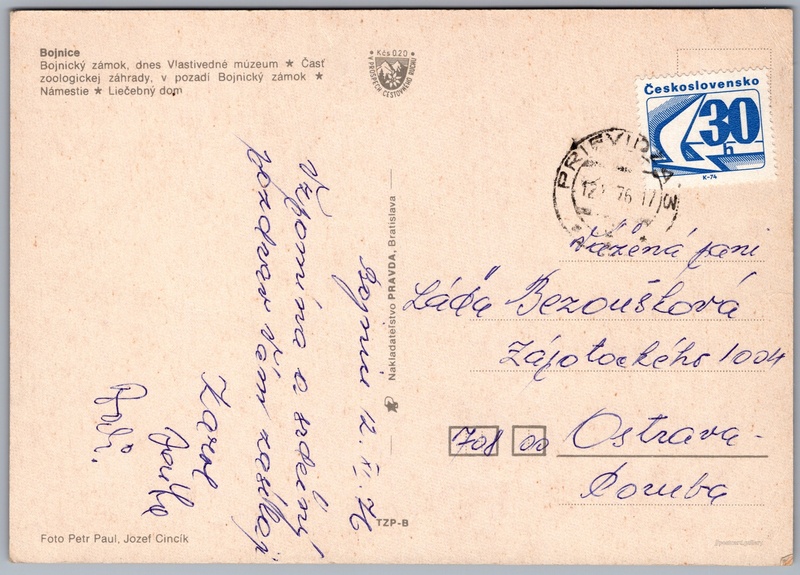 Bojnice
Bojnický zámok, dnes Vlastivedné múzeum ★ Časť
zoologickej záhrady, v pozadí Bojnický zámok ★
Námestie ★ Liečebný dom
Kčs 0,20
V PROSPECH CESTOVNÉHO RUCHU
Československo
30
h
K-74
PRIEVIDZA
76-17
3
Bojnice 12. XI. 76
Vzpomína a srdečný
pozdrav Vám zasílají
Karol
Nakladateľstvo PRAVDA, Bratislava
TZP-B
Vážená paní
Láďa Bezoušková
Zápotockého 1004
708 00 Ostrava-
Poruba
Foto Petr Paul, Jozef Cincík